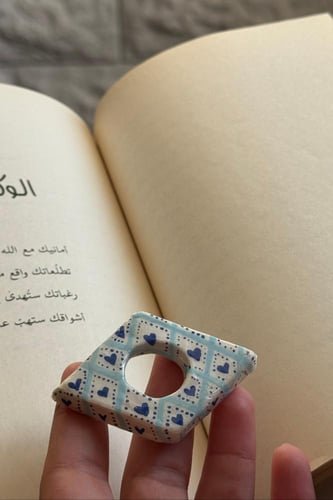 أمانيك مع الله
تطلّعاتك واقع
رغباتك ستُهدى
أشواقك ستهبّ